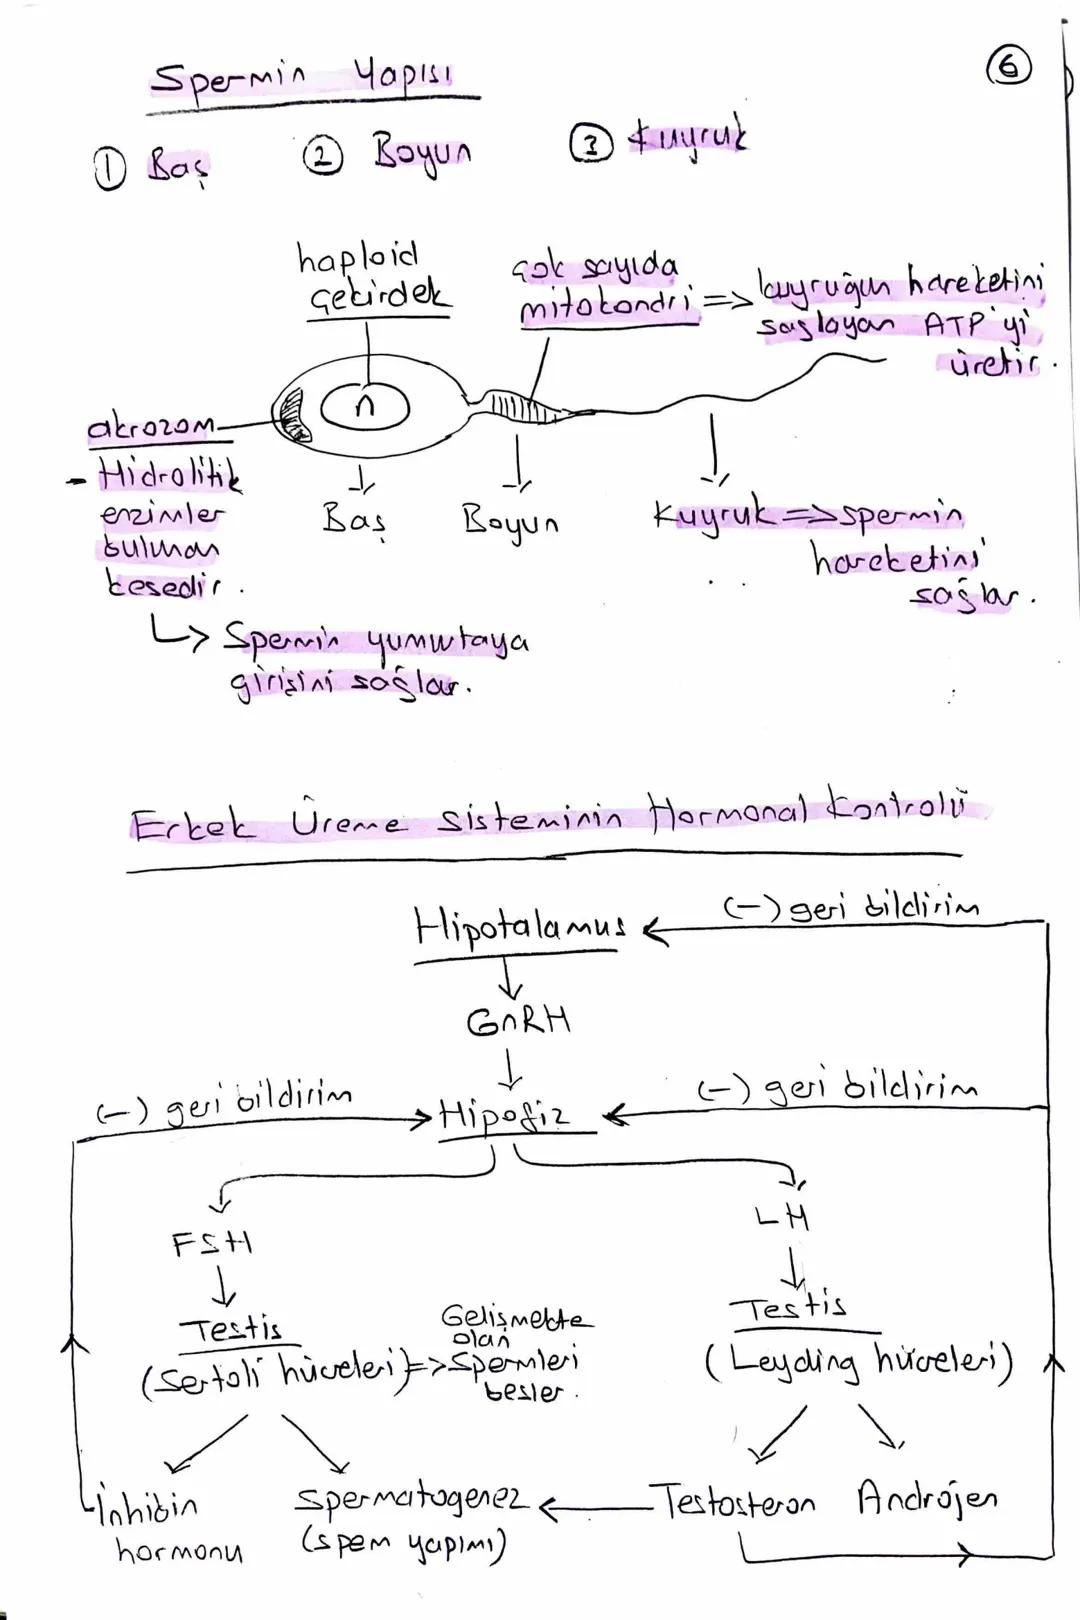 Spermin Yapısı
6
① Baş ② Boyun ③ Kuyruk
haploid
çekirdek
çok sayıda
mitokondri => kuyruğun hareketini
sağlayan ATP'yi
üretir.
n
akrozom
- Hidrolitik
enzimler
bulunan
kesedir.
↳ Spermin yumurtaya
girişini sağlar.
Baş
Boyun
Kuyruk => spermin
hareketini
sağlar.
Erkek Üreme Sisteminin Hormonal Kontrolü
Hipotalamus
(-) geri bildirim
GnRH
(-) geri bildirim
Hipofiz
(-) geri bildirim
FSH
LH
Testis
(Sertoli hücreleri) => Gelişmekte
olan
spermleri
besler.
Testis
(Leyding hücreleri)
İnhibin
hormonu
Spermatogenez
(spem yapımı)
Testosteron
Androjen